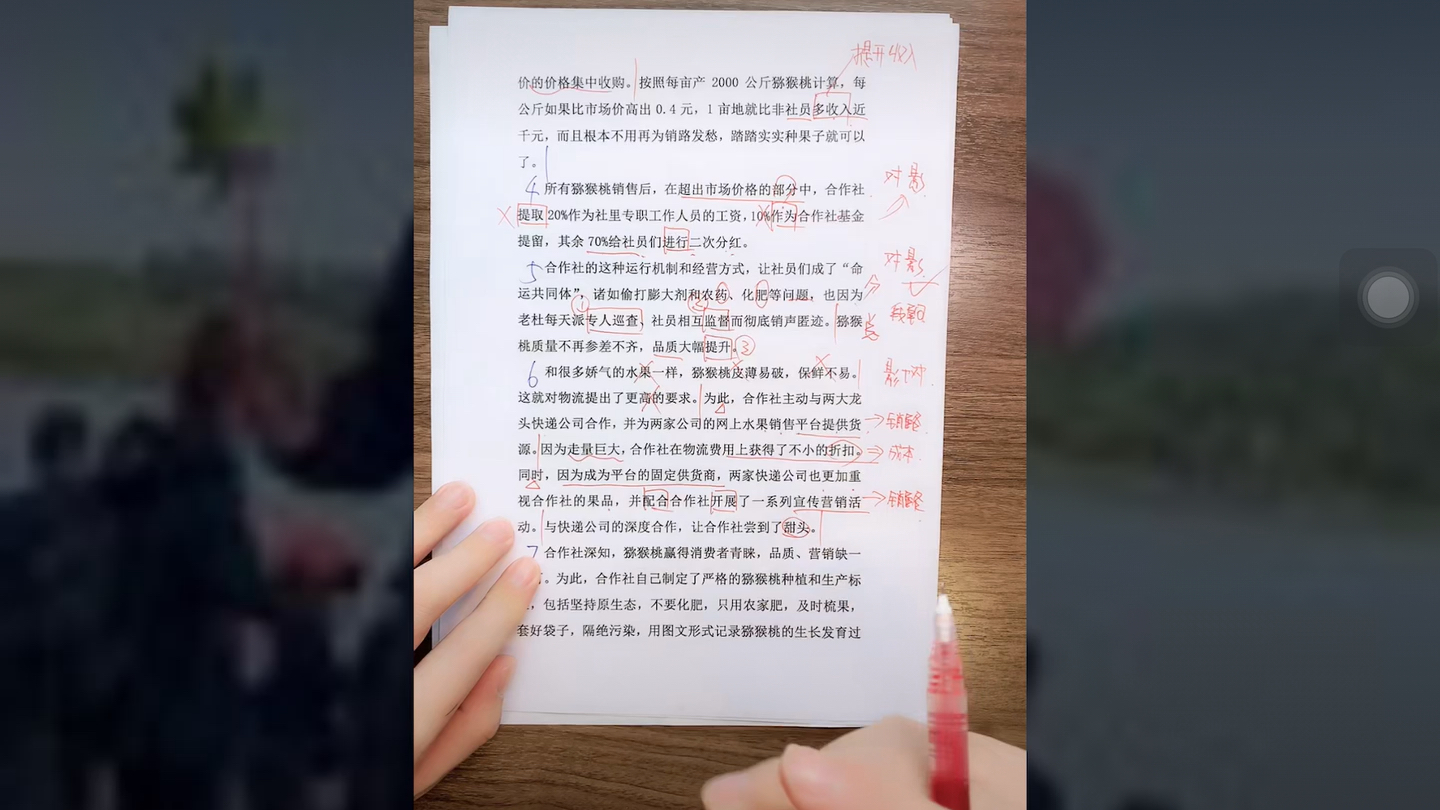 提升收入
价的价格集中收购。按照每亩产 2000 公斤猕猴桃计算，每
公斤如果比市场价高出 0.4 元，1 亩地就比非社员多收入近
千元，而且根本不用再为销路发愁，踏踏实实种果子就可以
了。
4 所有猕猴桃销售后，在超出市场价格的部分中，合作社
对 影
提取 20%作为社里专职工作人员的工资，10%作为合作社基金
提留，其余 70%给社员们进行二次分红。
5 合作社的这种运行机制和经营方式，让社员们成了“命
对 影
运共同体”，诸如偷打膨大剂和农药、化肥等问题，也因为
① ②
老杜每天派专人巡查、社员相互监督而彻底销声匿迹。猕猴
桃质量不再参差不齐，品质大幅提升。③
6 和很多娇气的水果一样，猕猴桃皮薄易破，保鲜不易。
这就对物流提出了更高的要求。为此，合作社主动与两大龙
头快递公司合作，并为两家公司的网上水果销售平台提供货
源。因为走量巨大，合作社在物流费用上获得了不小的折扣。
成本
同时，因为成为平台的固定供货商，两家快递公司也更加重
视合作社的果品，并配合合作社开展了一系列宣传营销活
动。与快递公司的深度合作，让合作社尝到了甜头。
7 合作社深知，猕猴桃赢得消费者青睐，品质、营销缺一
。为此，合作社自己制定了严格的猕猴桃种植和生产标
，包括坚持原生态，不要化肥，只用农家肥，及时梳果，
套好袋子，隔绝污染，用图文形式记录猕猴桃的生长发育过